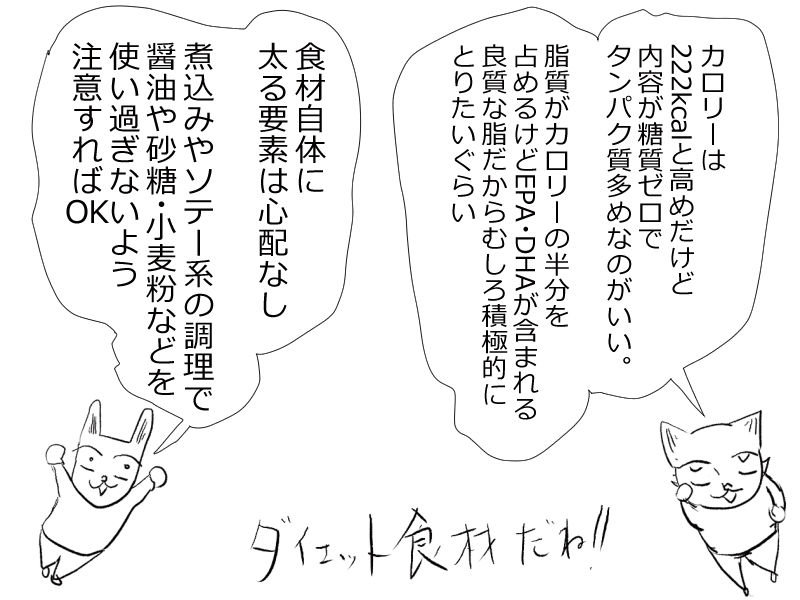 カロリーは
222kcalと高めだけど
内容が糖質ゼロで
タンパク質多めなのがいい。
脂質がカロリーの半分を
占めるけどEPA・DHAが含まれる
良質な脂だからむしろ積極的に
とりたいぐらい
食材自体に
太る要素は心配なし
煮込みやソテー系の調理で
醤油や砂糖・小麦粉などを
使い過ぎないよう
注意すればOK
ダイエット食材だね!!